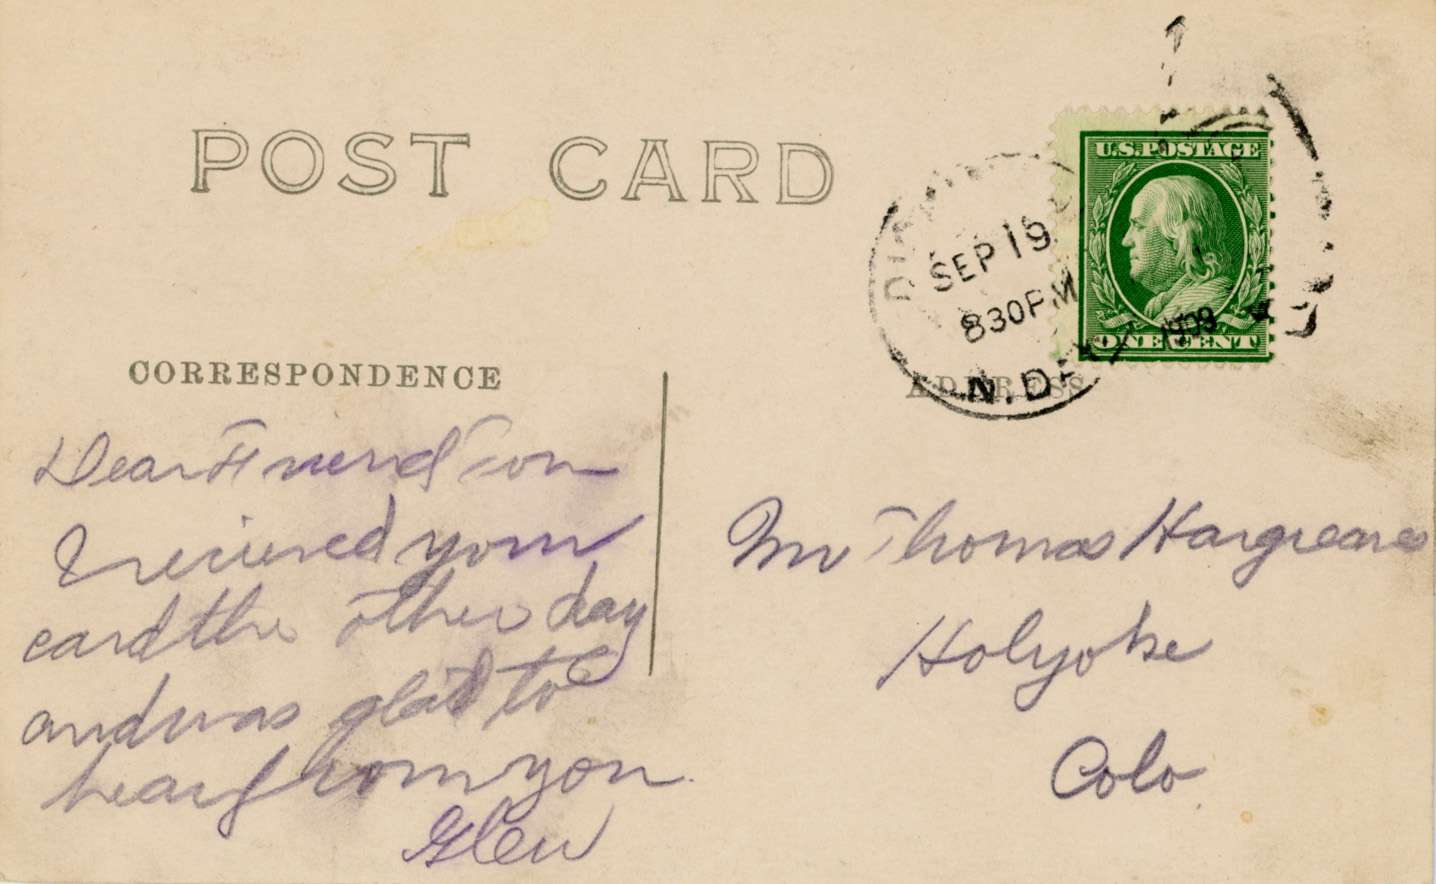 POST CARD
U.S.POSTAGE
ONE CENT
SEP 19
830PM
1909
N.DAK
CORRESPONDENCE
ADDRESS
Dear Friend Tom
I recieved your
card the other day
and was glad to
hear from you.
Glen
Mr Thomas Hargreaves
Holyoke
Colo.